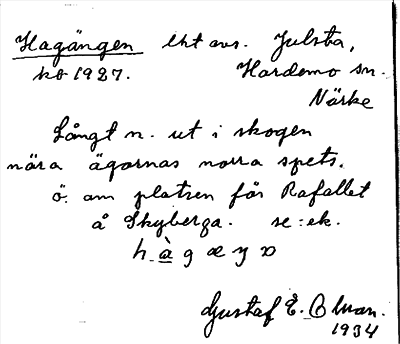 Hagängen lht avs. Julsta,
ko 1927. Hardemo sn.
Närke
Långt n. ut i skogen
nära ägornas norra spets.
ö. om platsen för Rafallet
å Skyberga. se: ek.
h à g æ ŋ
Gustaf E.
1934